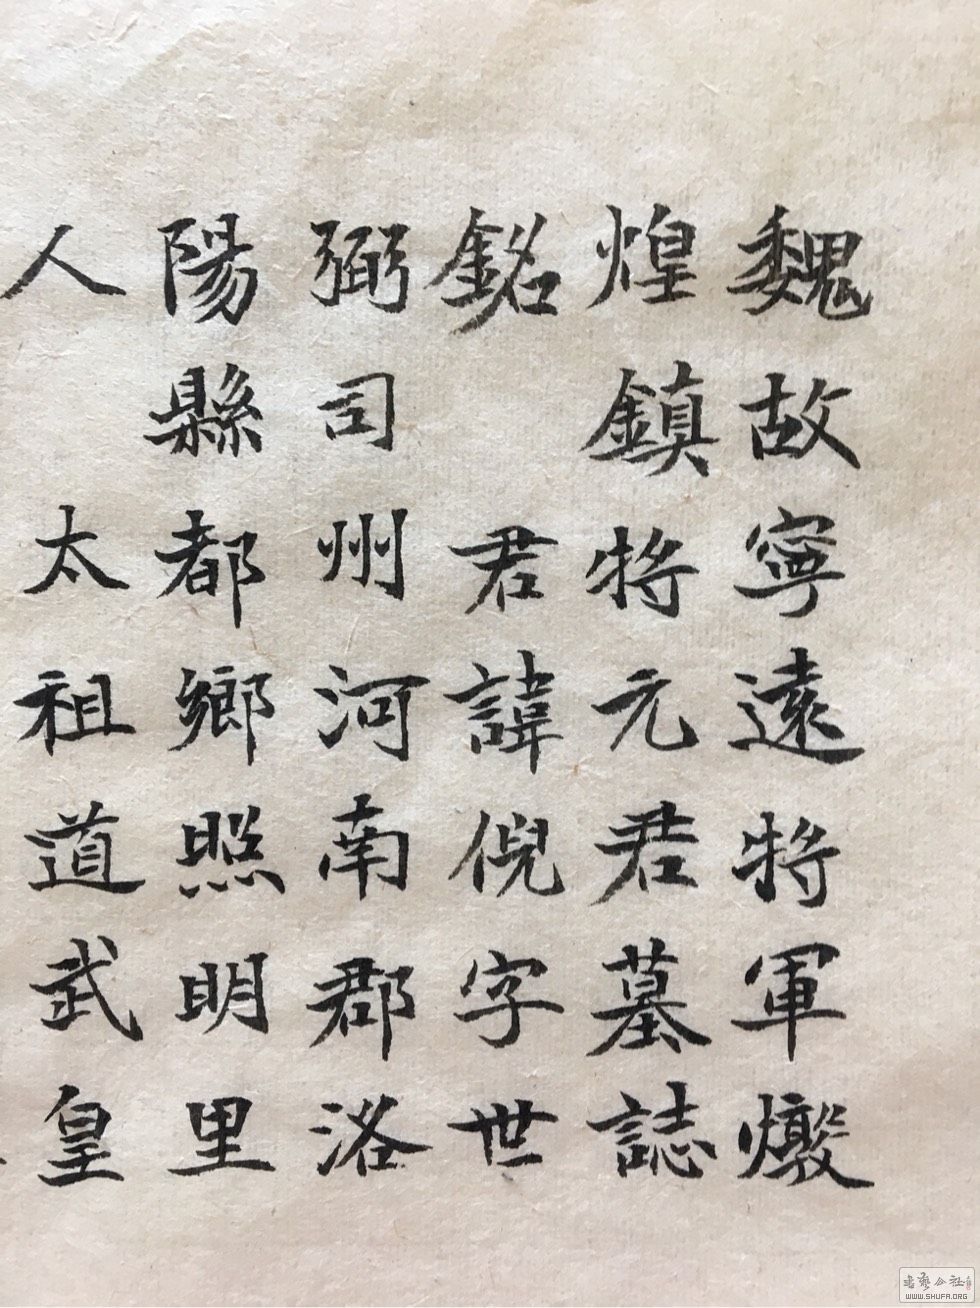 魏故寧遠將軍燉
煌鎮將元君墓誌
銘 君諱倪字世
弼司州河南郡洛
陽縣都鄉照明里
人太祖道武皇
書藝公社
WWW.SHUFA.ORG